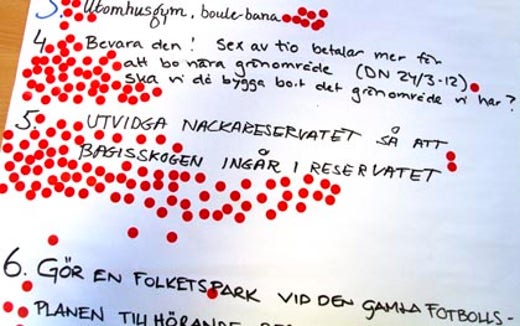 3. Utomhusgym, boule-bana
4. Bevara den! Sex av tio betalar mer för
att bo nära grönområde (DN 24/3-12)
ska vi då bygga bort det grönområde vi har?
5. UTVIDGA NACKARESERVATET SÅ ATT
BAGISSKOGEN INGÅR I RESERVATET
6. GÖR EN FOLKETSPARK VID DEN GAMLA FOTBOLLS-
PLANEN TILLHÖRANDE